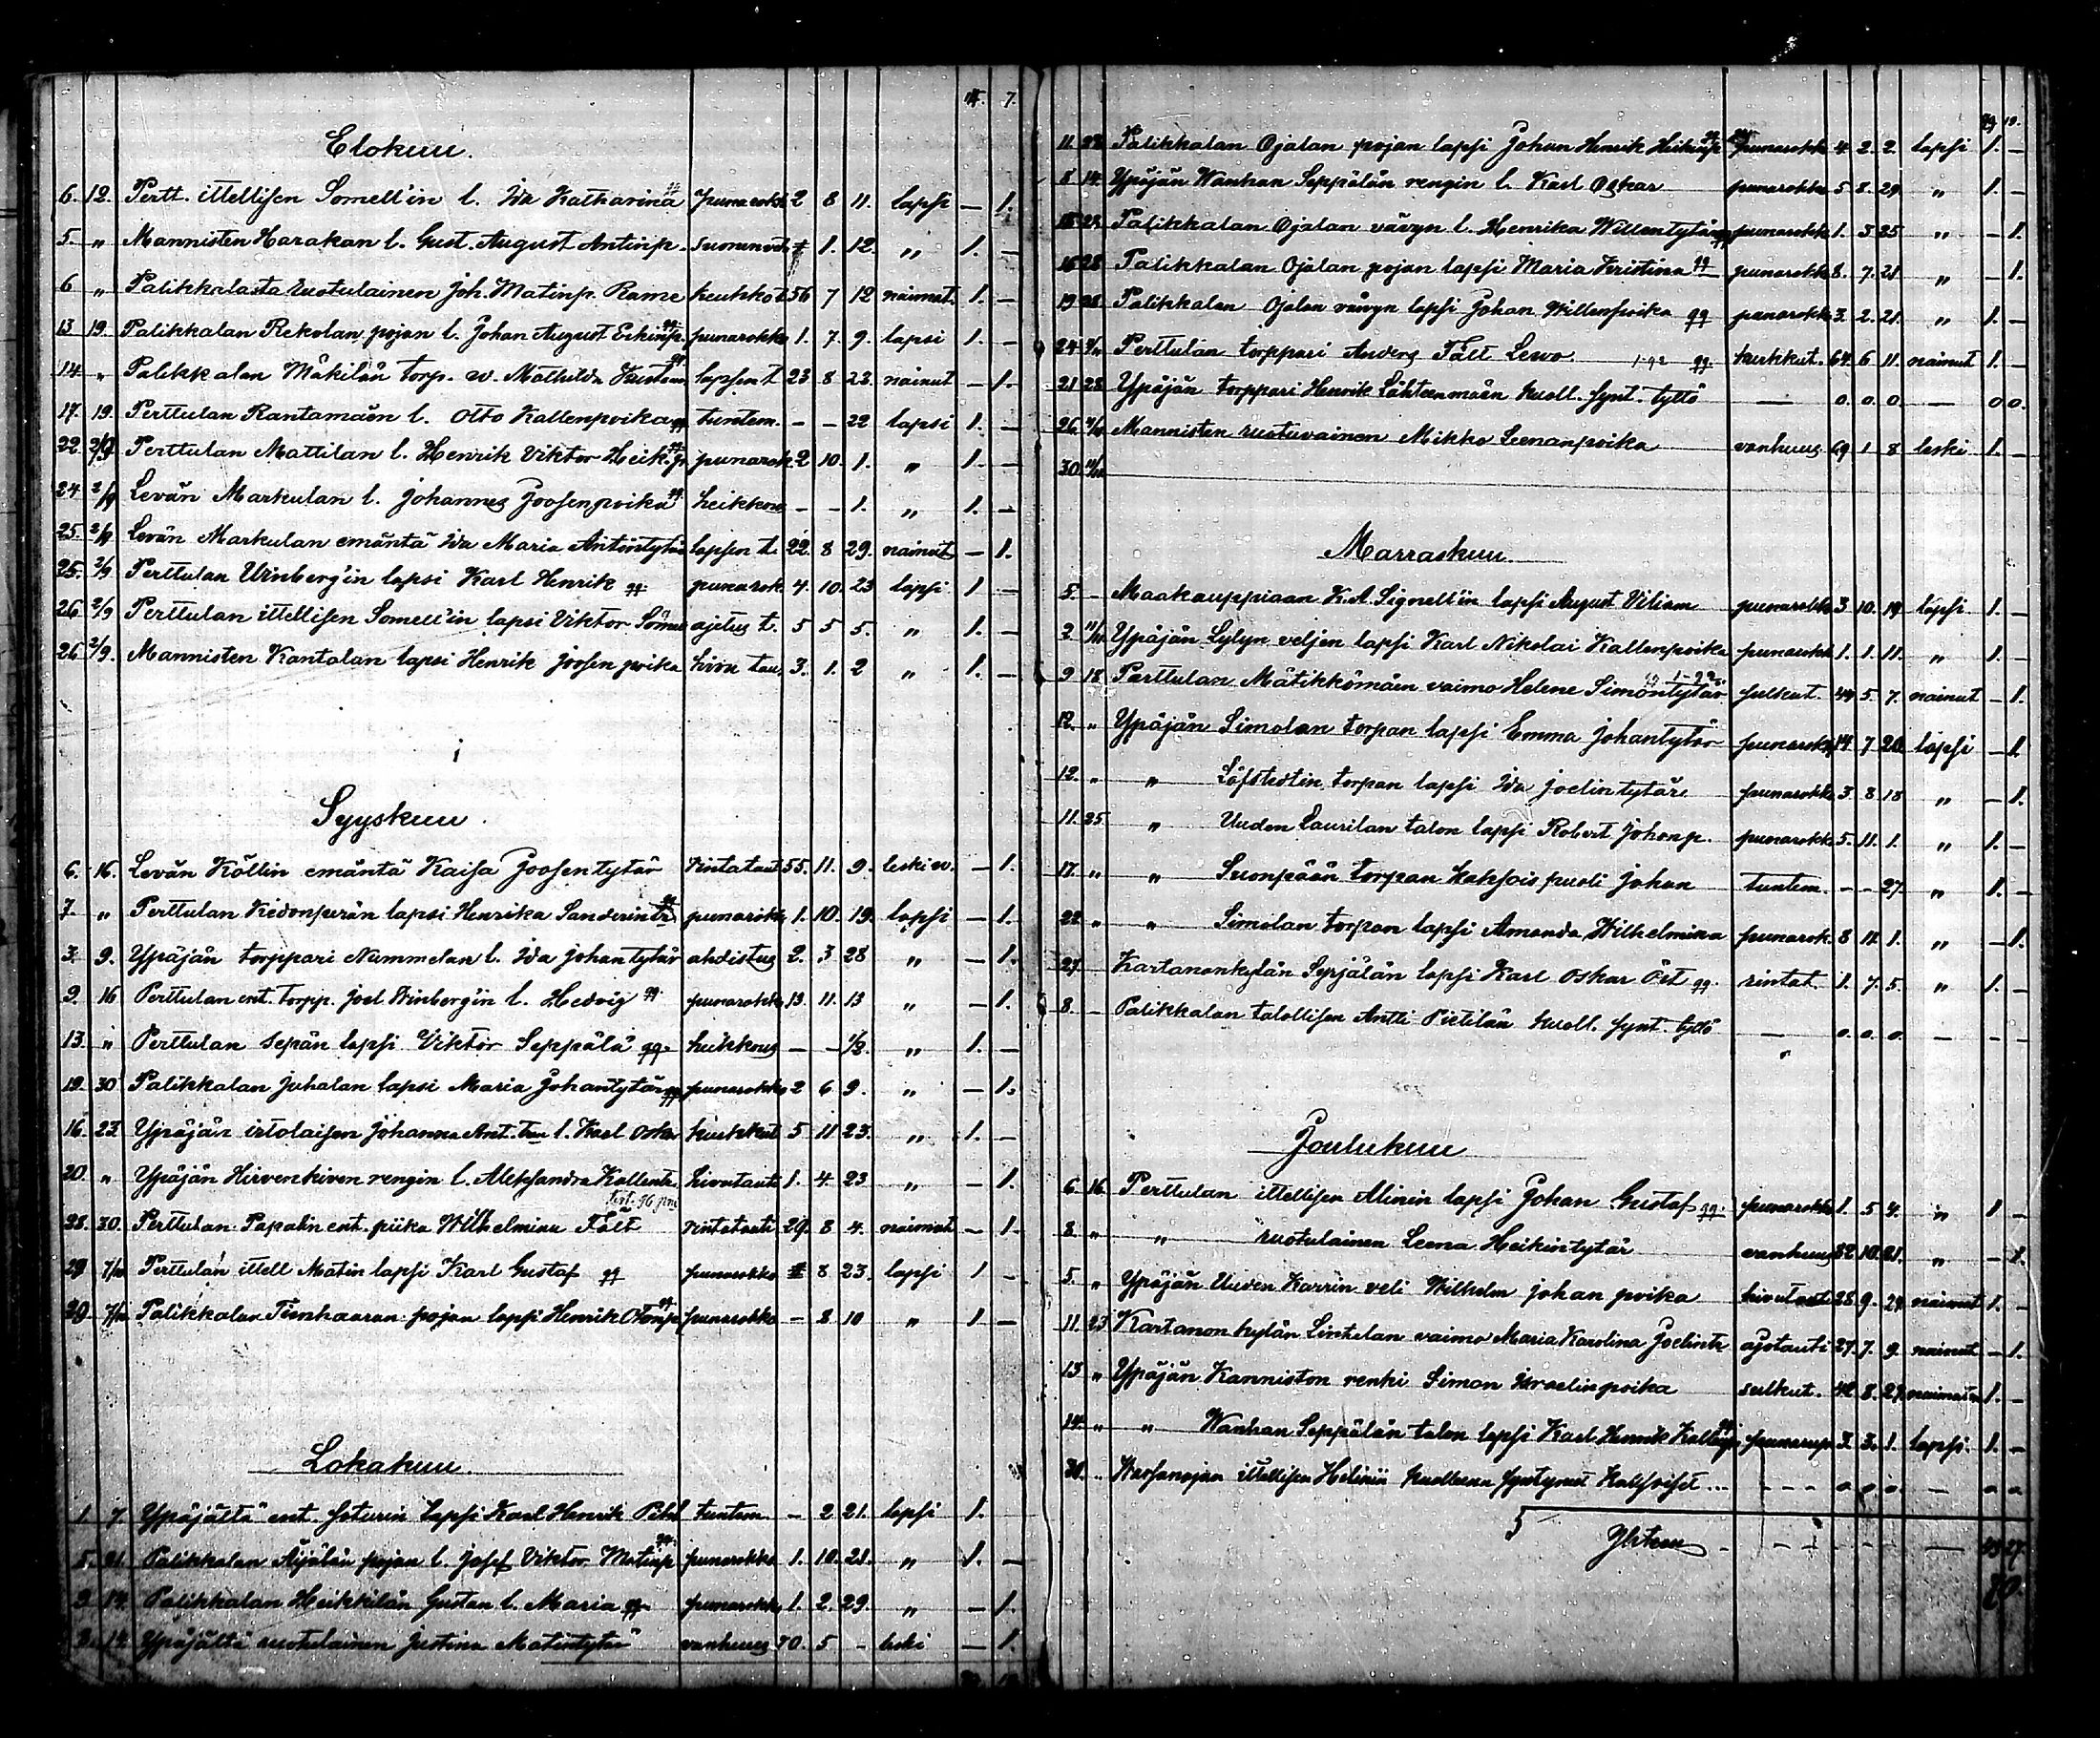 Elokuu.
6. 12. Pertt. ittellisen Somell'in l. Ida Katharina punarokk 2 8 11. lapsi — 1.
5. „ Mannisten Harakan l. Gust. August Antinp. 1. 12. „ 1. —
6 „ Palikkalasta ruotulainen Joh. Matinp. Rame keuhkot. 56 7 12 nainut. 1. —
13 19. Palikkalan Rekolan pojan l. Johan August Eskinp. punarokko 1. 7. 9. lapsi 1. —
14 „ Palikkalan Mäkilän torp. w. Mathilda Kustaan lapsen t. 23 8 23. nainut — 1.
17. 19. Perttulan Rantamäen l. Otto Kallenpoika qq tuntem. — — 22 lapsi 1. —
22. 2/9 Perttulan Mattilan l. Henrik Viktor Heik.p. punarok. 2 10. 1. „ 1. —
24. 2/9 Levän Markulan l. Johannes Joosenpoika qq heikkous — — 1. „ 1. —
25. 2/9 Levän Markulan emäntä Ida Maria Antintytär lapsen t. 22. 8 29. nainut — 1.
25. 2/9 Perttulan Winberg'in lapsi Karl Henrik qq punarok. 4. 10. 23 lapsi 1 —
26 2/9 Perttulan ittellisen Somell'in lapsi Viktor ajetus t. 5 5 5. „ 1. —
26 2/9. Mannisten Kantalan lapsi Henrik Joosenpoika hivu tau. 3. 1. 2 „ 1. —
Syyskuu.
6. 16. Levän Köllin emäntä Kaisa Joosentytär rintataut 55. 11. 9. leski w. — 1.
7. „ Perttulan Kedonperän lapsi Henrika Sanderintr. punarokk 1. 10. 19. lapsi — 1.
3. 9. Ypäjän torppari Nummelan l. Ida Johantytär ahdistus 2. 3 28 „ — 1.
9. 16 Perttulan ent. torpp. Joel Winberg'in l. Hedvig qq punarokko 13. 11. 13 „ — 1.
13. „ Perttulan sepän lapsi Viktor Seppälä qq. heikkous — — 1/2. „ 1. —
19. 30 Palikkalan Juhalan lapsi Maria Johantytär qq punarokko 2 6 9. „ — 1.
16. 23. Ypäjän irtolaisen Johanna Ant. tren l. Karl Oskar kurkkut 5 11 23. „ 1. —
20. „ Ypäjän Hirvenkiven rengin l. Aleksandra Kallentr. hivutauti 1. 4. 23 „ — 1.
28. 30. Perttulan Papalin ent. piika Wilhelmina Fält rintatauti 29. 8 4. naimat — 1.
29 7/10 Perttulan ittell Matin lapsi Karl Gustaf qq punarokko 8 23. lapsi 1 —
29. 7/10 Palikkalan Tienhaaran pojan lapsi Henrik Otonp. punarokko — 8 10 „ 1 —
Lokakuu.
1. 7 Ypäjältä ent. soturin lapsi Karl Henrik tuntem — 2 21. lapsi 1.
5. 21. Palikkalan Äijälän pojan l. Josef Viktor Matinp. punarokko 1. 10. 21. „ 1. —
9 14. Palikkalan Heikkilän Gustan l. Maria qq punarokko 1. 2. 29. „ — 1.
8. 14. Ypäjältä ruotulainen Justina Matintytär vanhuus 70. 5 — leski — 1.
7.
11. 22. Palikkalan Ojalan pojan lapsi Johan Henrik Heikinp. punarokko 4 2. 2. lapsi 1. —
8 14. Ypäjän Wanhan Seppälän rengin l. Karl Oskar punarokko 5 8. 29. „ 1. —
Palikkalan Ojalan vävyn l. Henrika Willentytär qq punarokko 1. 3 25 „ — 1.
Palikkalan Ojalan pojan lapsi Maria Kristina qq punarokko 8. 7. 21 „ — 1.
19 28 Palikkalan Ojalan vävyn lapsi Johan Willenpoika qq punarokko 3. 2. 21. „ 1. —
Perttulan torppari Anders Fält Lewo qq. kurkkut. 64 6 11. nainut 1. —
21 28 Ypäjän torppari Henrik Lähteenmäen kuoll. synt. tyttö — 0. 0. 0. — 0 0.
26. Mannisten ruotuvainen Mikko Leenanpoika vanhuus 69 1 8 leski 1. —
30.
Marraskuu.
5. – Maakauppiaan K. A. Signell'in lapsi August Viliam punarokko 3 10. 19. lapsi 1. —
2 Ypäjän Lylyn veljen lapsi Karl Nikolai Kallenpoika punarokk 1. 1. 11. „ 1. —
9 18 Perttulan Mätikkömäen vaimo Helene Simontytär 5 7. nainut — 1.
12. „ Ypäjän Simolan torpan lapsi Emma Johantytär punarokk 14. 7 20 lapsi — 1.
12. „ „ Löfstedtin torpan lapsi Ida Joelintytär punarokko 3. 8 18 „ — 1.
11. 25 „ Uuden Laurilan talon lapsi Robert Johanp. punarokko 5. 11. 1. „ 1. —
17. „ „ Suonpään torpan kaksoispuoli Johan tuntem. — — 27. „ 1. —
22. „ „ Simolan torpan lapsi Amanda Wilhelmina punarok. 8 11. 1. „ — 1.
27. Kartanonkylän Syrjälän lapsi Karl Oskar Öst qq. rintat. 1. 7. 5. „ 1. —
8. – Palikkalan talollisen Antti Pietilän kuoll. synt. tyttö — 0. 0. 0. — — —
Joulukuu
6 16. Perttulan ittellisen Alinin lapsi Johan Gustaf qq. punarokko 1. 5 4. „ 1 —
8. „ „ ruotulainen Leena Heikintytär vanhuus 82 10. 21. „ — 1.
5. „ Ypäjän Uuden Karrin veli Wilhelm Johan poika hivutauti 28 9. 29. nainut 1. —
11. 23 Kartanonkylän Sintelan vaimo Maria Karolina Joelintr ajotauti 27. 7. 9. nainut — 1.
13 „ Ypäjän Kanniston renki Simon Israelinpoika sulkut. 42 8. 29. 1. —
14. „ „ Wanhan Seppälän talon lapsi Karl Henrik Kallenp. 3. 3. 1. lapsi. 1. —
ittellisen Helinin kuolleena syntyneet kaksoiset ... – – – 0. 0. 0. — 0 0
Yhteen – – – – – —